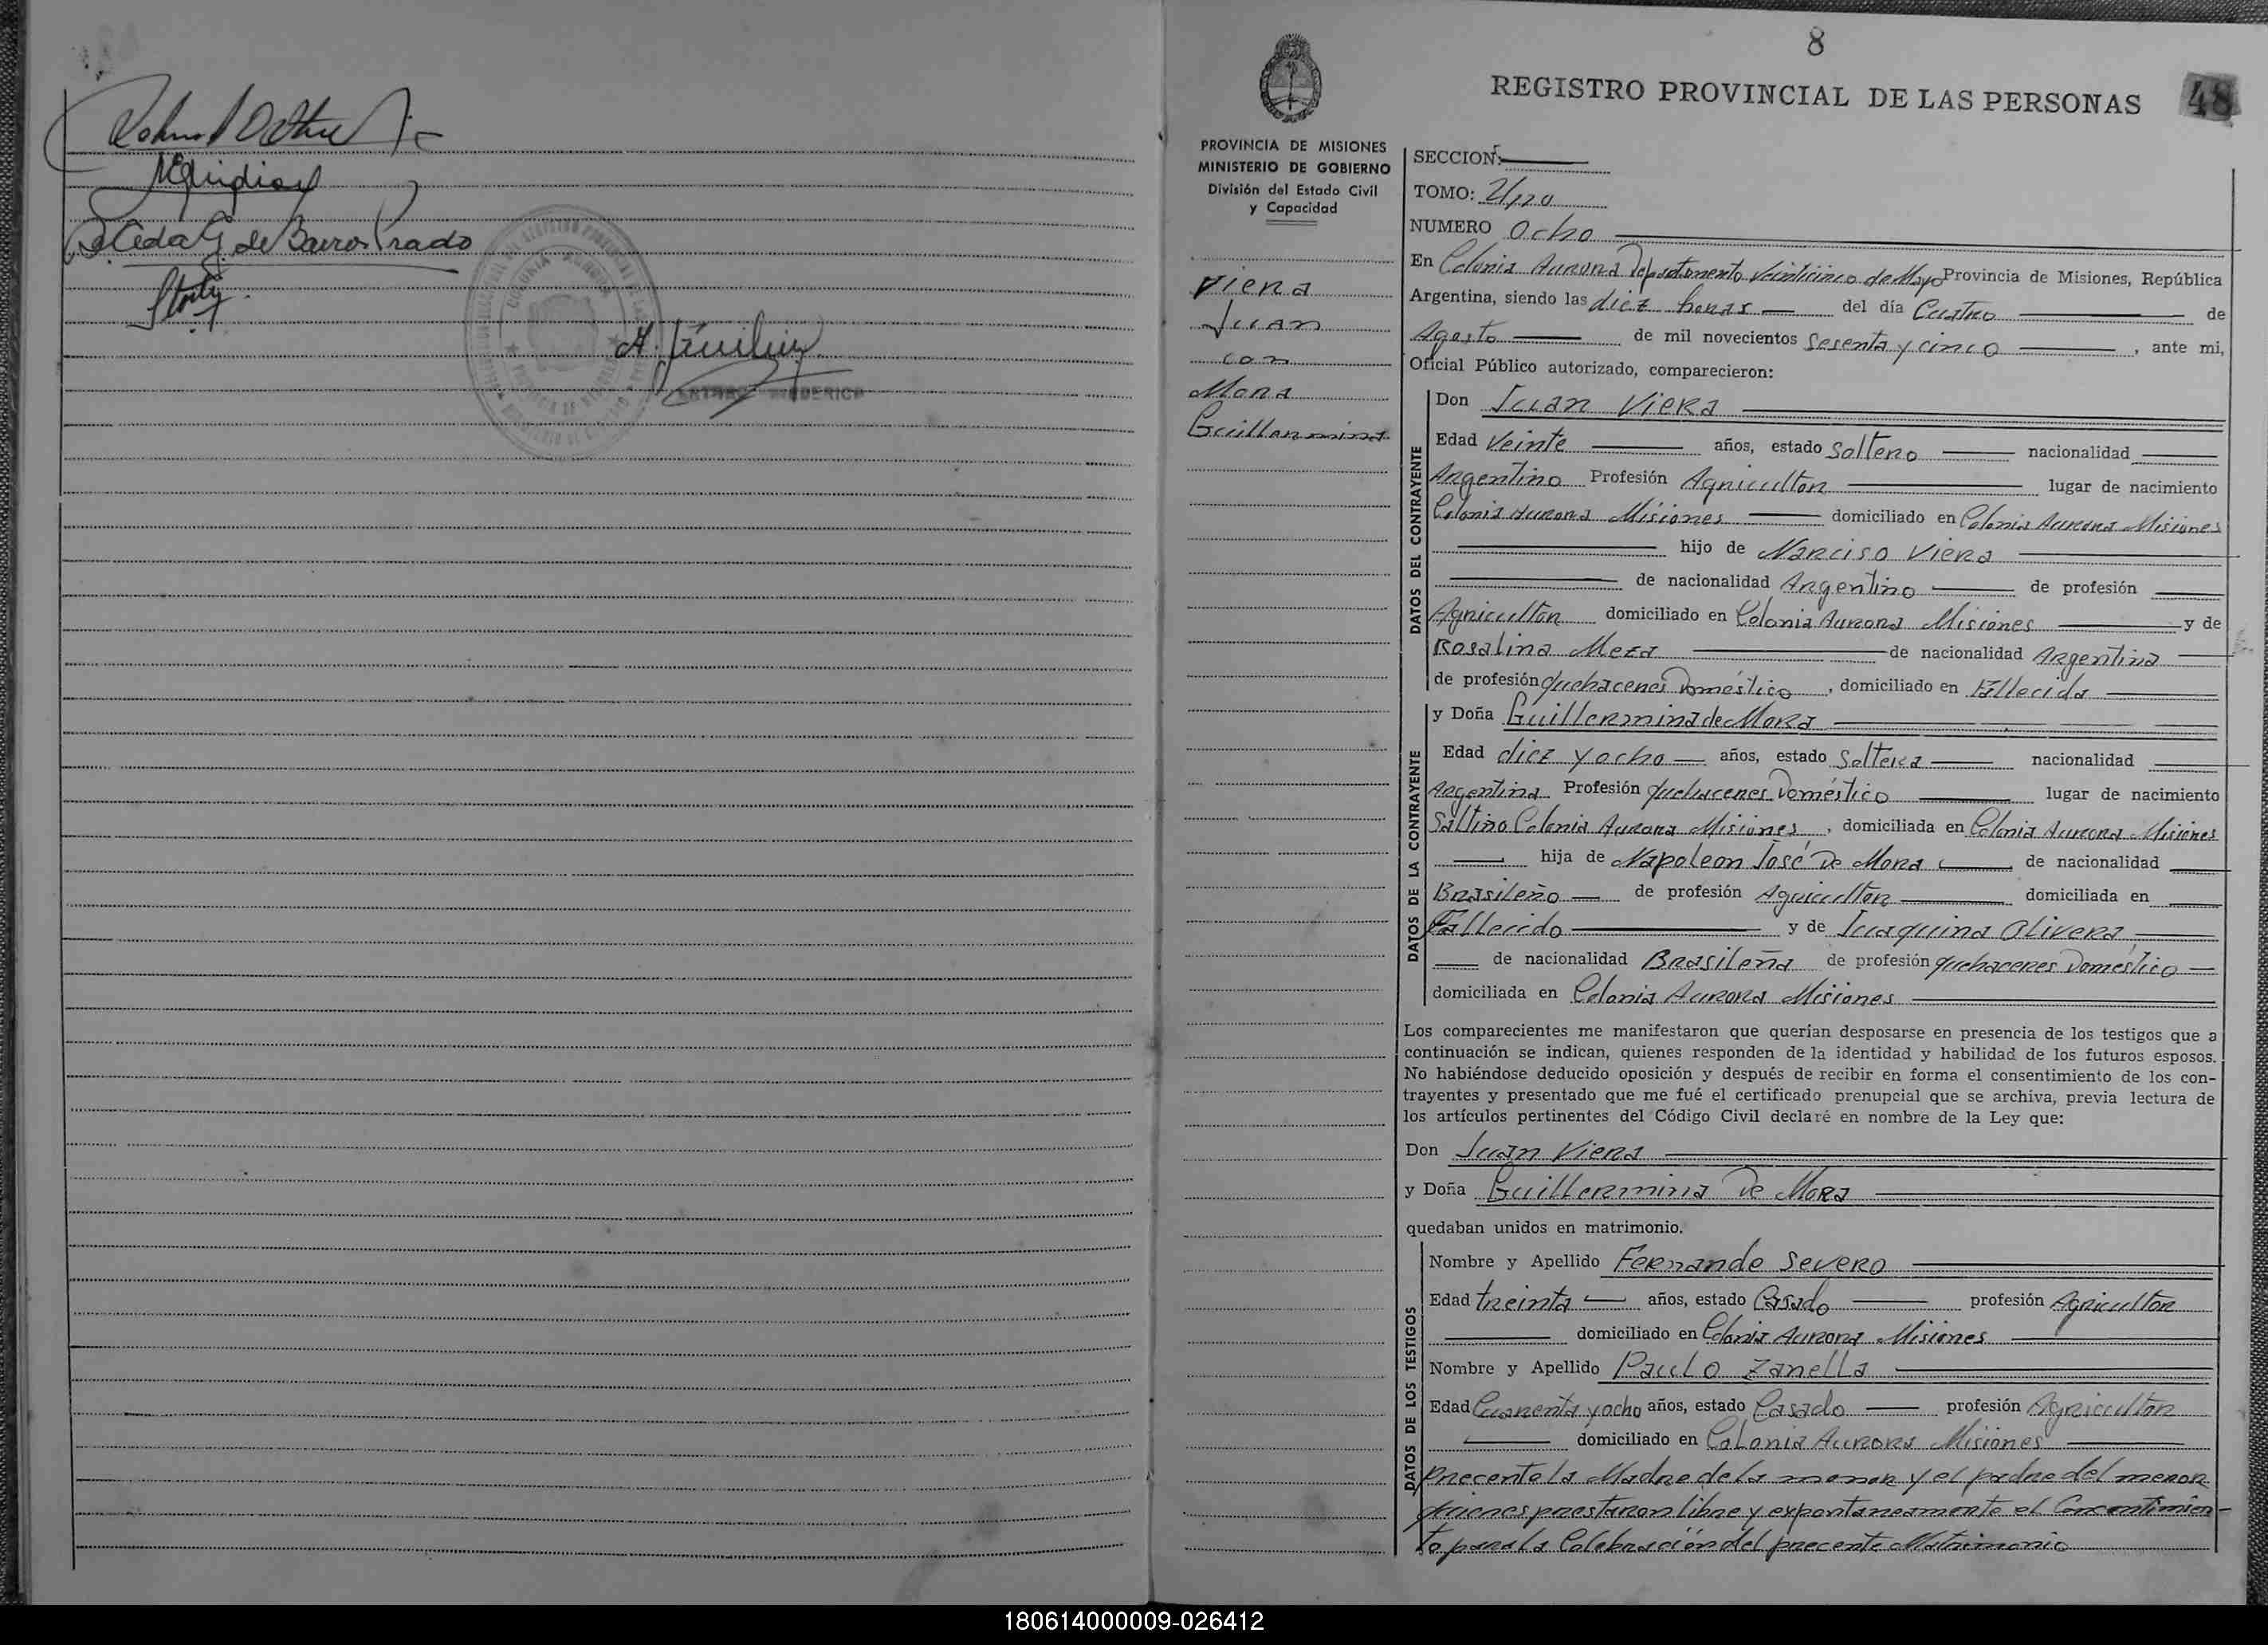 de Barros Prado
8
REGISTRO PROVINCIAL DE LAS PERSONAS
48
PROVINCIA DE MISIONES
MINISTERIO DE GOBIERNO
División del Estado Civil
y Capacidad
Viera
Juan
con
Mora
Guillermina
SECCION:
TOMO: Uno
NUMERO Ocho
En Colonia Aurora Departamento Veinticinco de Mayo Provincia de Misiones, República
Argentina, siendo las diez horas del día Cuatro de
Agosto de mil novecientos Sesenta y cinco, ante mi,
Oficial Público autorizado, comparecieron:
DATOS DEL CONTRAYENTE
Don Juan Viera
Edad Veinte años, estado Soltero nacionalidad
Argentino Profesión Agricultor lugar de nacimiento
Colonia Aurora Misiones domiciliado en Colonia Aurora Misiones
hijo de Narciso Viera
de nacionalidad Argentino de profesión
Agricultor domiciliado en Colonia Aurora Misiones y de
Rosalina Meza de nacionalidad Argentina
de profesión quehaceres Doméstico, domiciliado en Fallecida
DATOS DE LA CONTRAYENTE
y Doña Guillermina de Mora
Edad diez y ocho años, estado Soltera nacionalidad
Argentina Profesión quehaceres Doméstico lugar de nacimiento
Saltiño Colonia Aurora Misiones, domiciliada en Colonia Aurora Misiones
hija de Napoleon José De Mora de nacionalidad
Brasileño de profesión Agricultor domiciliada en
Fallecido y de Juaquina Olivera
de nacionalidad Brasileña de profesión quehaceres Doméstico
domiciliada en Colonia Aurora Misiones
Los comparecientes me manifestaron que querían desposarse en presencia de los testigos que a
continuación se indican, quienes responden de la identidad y habilidad de los futuros esposos.
No habiéndose deducido oposición y después de recibir en forma el consentimiento de los con-
trayentes y presentado que me fué el certificado prenupcial que se archiva, previa lectura de
los artículos pertinentes del Código Civil declaré en nombre de la Ley que:
Don Juan Viera
y Doña Guillermina De Mora
quedaban unidos en matrimonio.
DATOS DE LOS TESTIGOS
Nombre y Apellido Fernando Severo
Edad treinta años, estado Casado profesión Agricultor
domiciliado en Colonia Aurora Misiones
Nombre y Apellido Paulo Zanella
Edad Cuarenta y ocho años, estado Casado profesión Agricultor
domiciliado en Colonia Aurora Misiones
precente la Madre de la menor y el padre del menor
quienes prestaron libre y expontaneamente el Concentimien-
to para la Celebración del precente Matrimonio
180614000009-026412